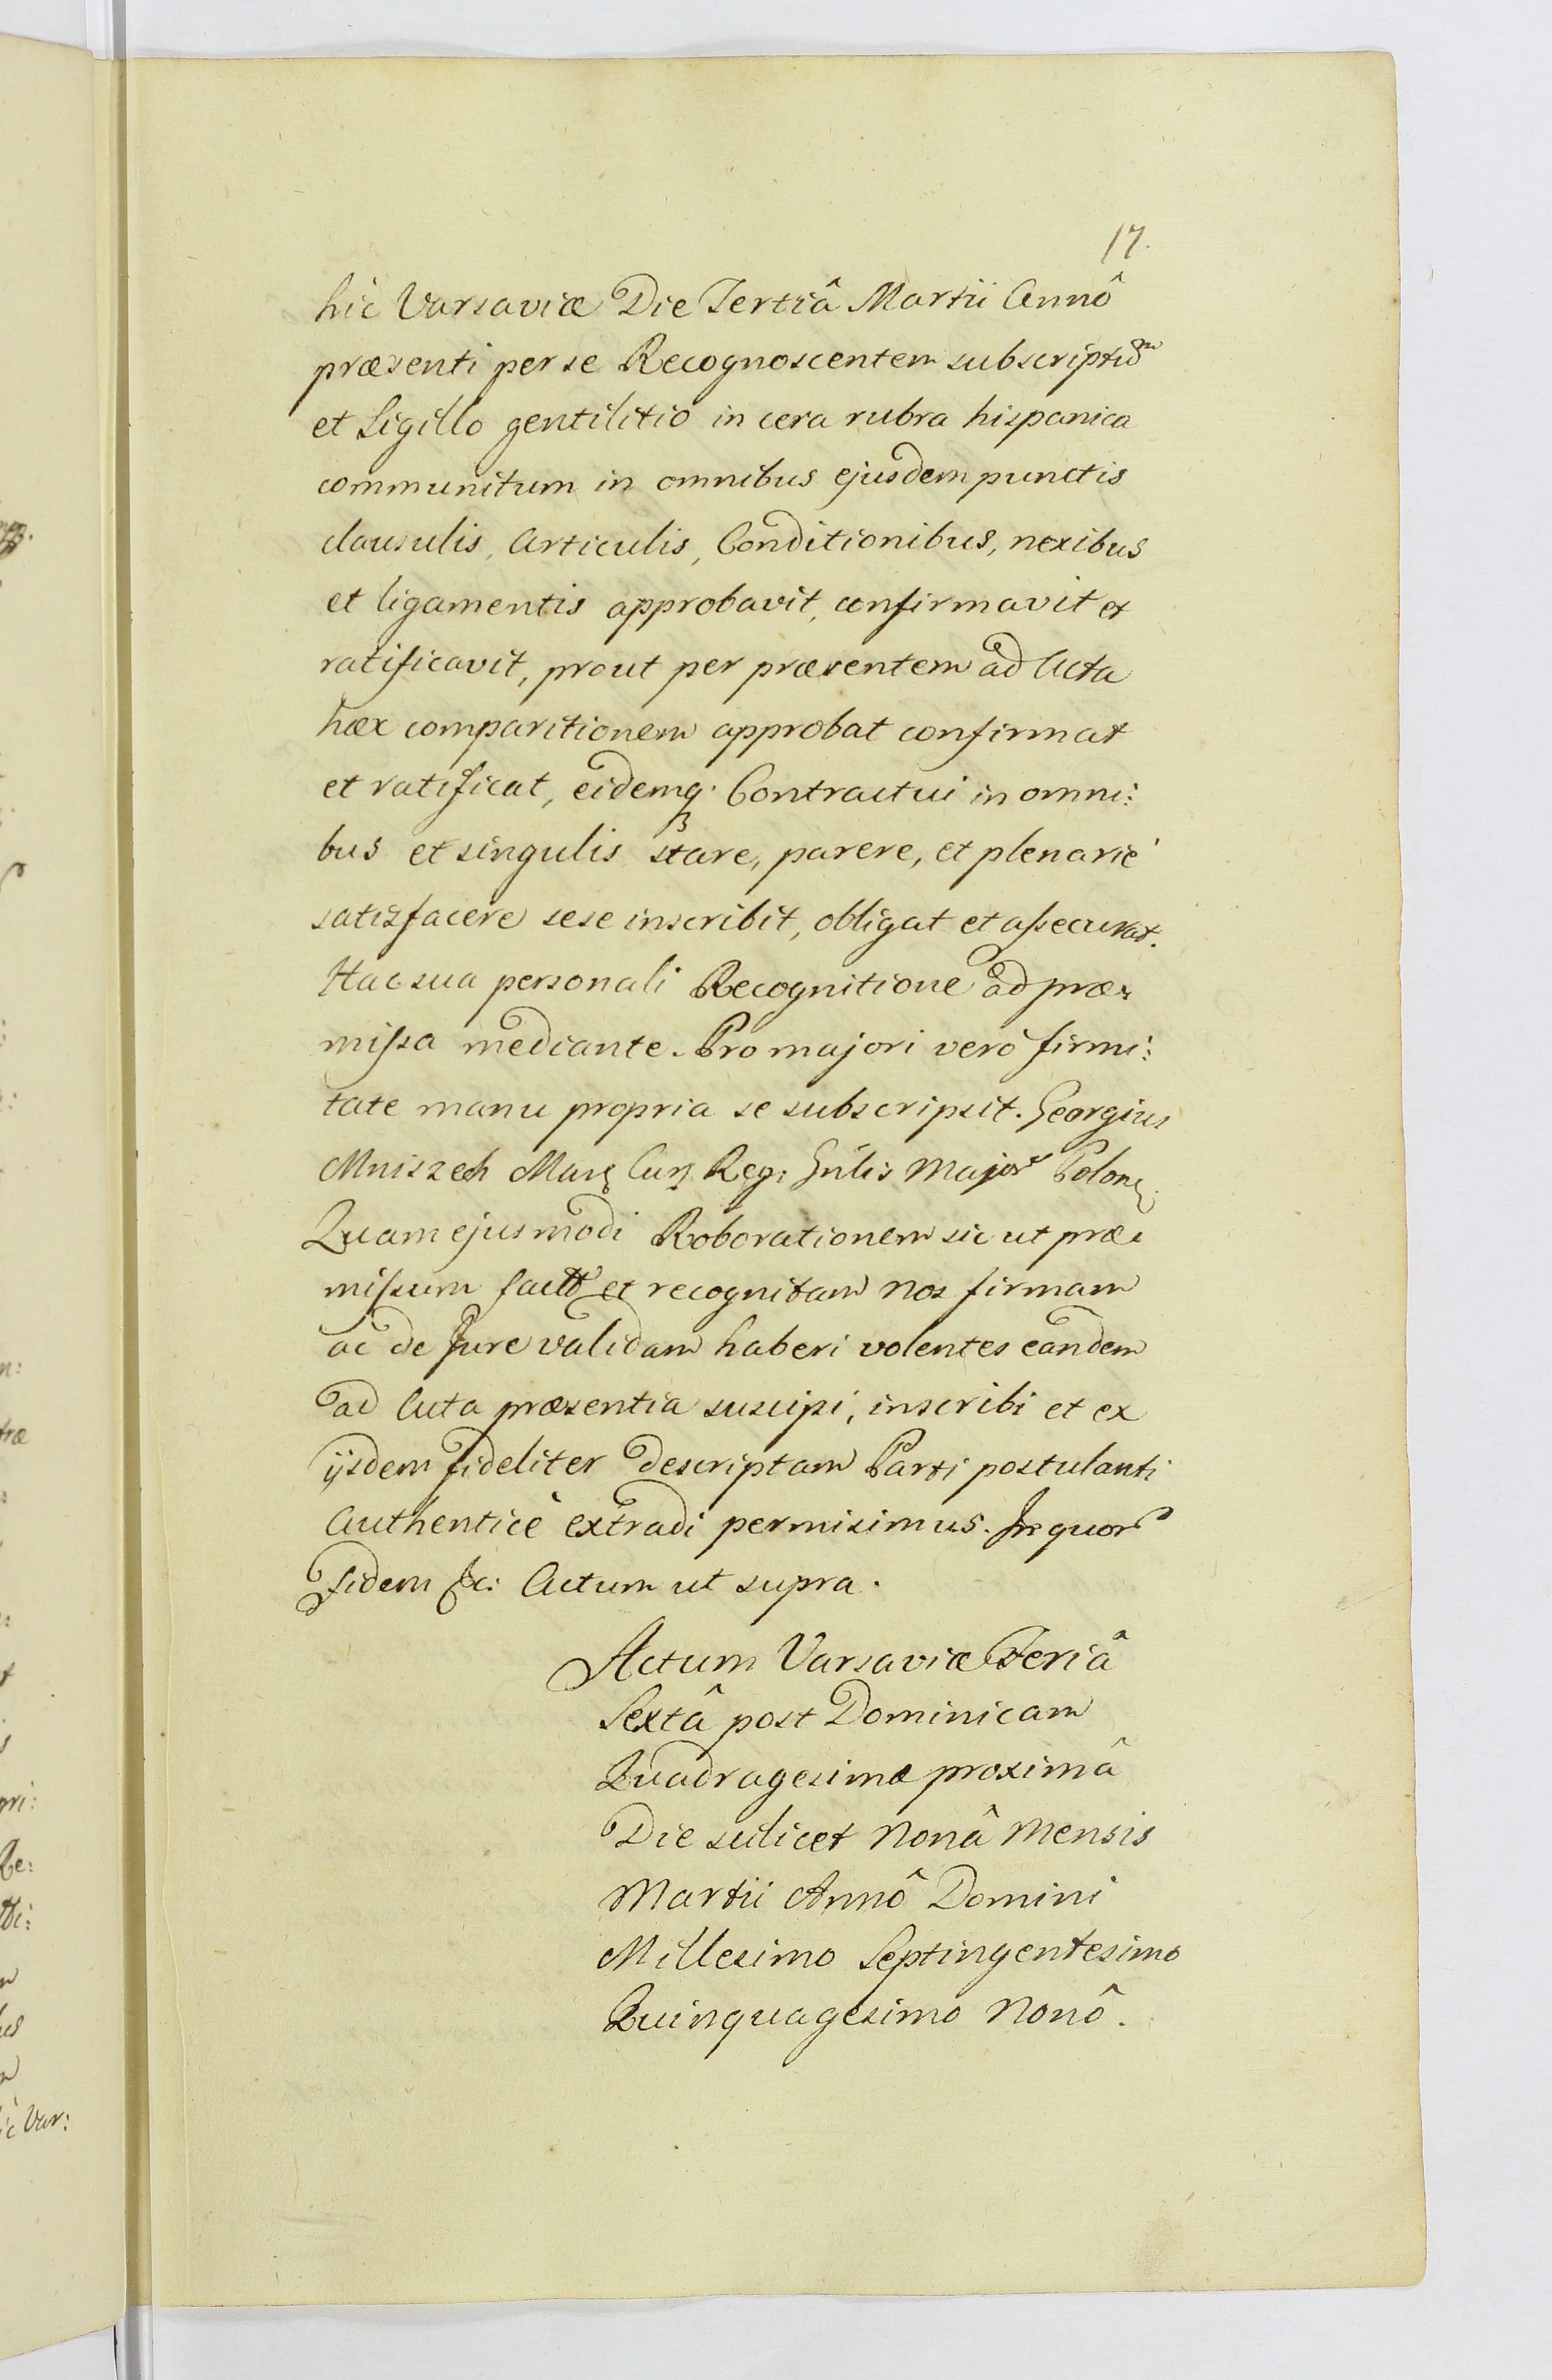 17.
hic Varsaviæ Die Tertiâ Martii Annô
præsenti per se Recognoscentem subscriptum
et Sigillo gentilitio in cera rubra hispanica
communitum in omnibus ejusdem punctis
clausulis, Articulis, Conditionibus, nexibus
et ligamentis approbavit, confirmavit et
ratificavit, prout per præsentem ad Acta
hæc comparitionem approbat confirmat
et ratificat, eidemq. Contractui in omni:
bus et singulis stare, parere, et plenarie
satisfacere sese inscribit, obligat et assecurat.
Hac sua personali Recognitione ad præ:
missa mediante. Pro majori verò firmi:
tate manu propria se subscripsit. Georgius
Mniszech Mar: Cur: Reg: Gnlis Major Polon:
Quam ejusmodi Roborationem sic ut præ:
missum et recognitam nos firmam
ac de Jure validam haberi volentes eandem
ad Acta præsentia suscipi, inscribi et ex
ijsdem fideliter descriptam Parti postulanti
Authenticè extradi permisimus. In quor
fidem &c: Actum ut supra.
Actum Varsaviæ Feriâ
Sextâ post Dominicam
Quadragesimæ proximâ
Die scilicet Nonâ Mensis
Martii Annô Domini
Millesimo Septingentesimo
Quinquagesimo Nonô.